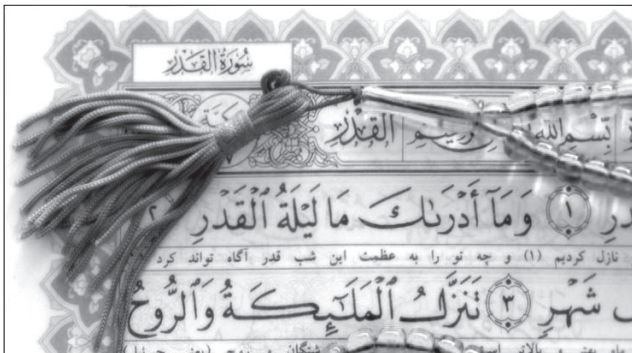 سُورَةُ الْقَدْرِ
بِسْمِ اللَّهِ
الْقَدْرِ
دْرِ ١ وَمَآ أَدْرَىٰكَ مَا لَيْلَةُ ٱلْقَدْرِ ٢
نازل کردیم (۱) و چه تو را به عظمت این شب قدر آگاه تواند کرد
شَهْرٍ ٣ تَنَزَّلُ ٱلْمَلَٰٓئِكَةُ وَٱلرُّوحُ